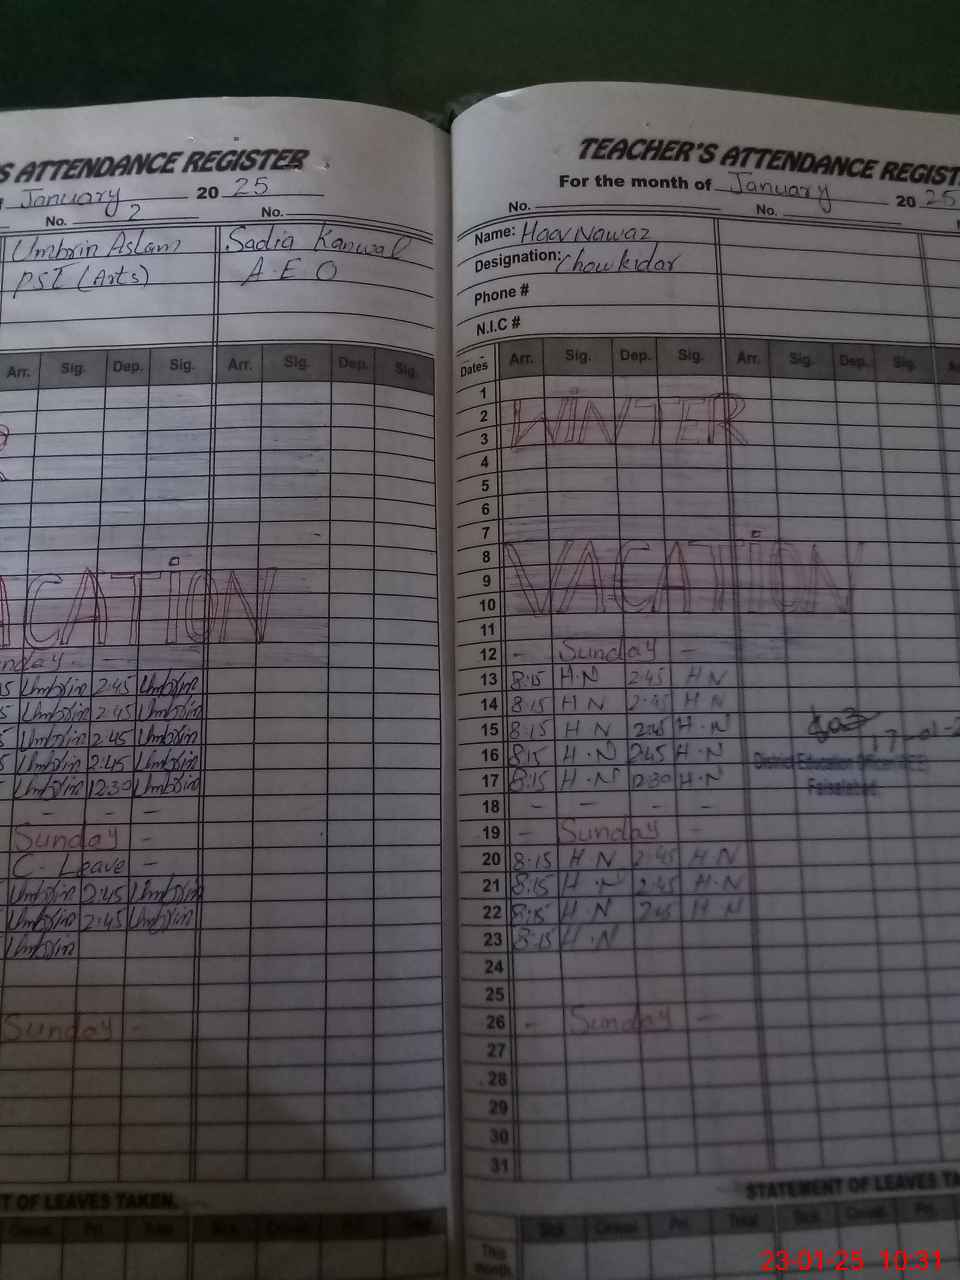 S ATTENDANCE REGISTER
January 20 25
No. 2 No.
Umbrin Aslam Sadia Kanwal
PST (Arts) A.E.O
Arr. Sig. Dep. Sig. Arr. Sig. Dep. Sig.
ACATION
nday -
5 Umbrin 2:45 Umbrin
5 Umbrin 2:45 Umbrin
5 Umbrin 2:45 Umbrin
5 Umbrin 2:45 Umbrin
5 Umbrin 12:30 Umbrin
- - - -
Sunday -
C. Leave -
Umbrin 2:45 Umbrin
Umbrin 2:45 Umbrin
Umbrin
Sunday -
T OF LEAVES TAKEN.
TEACHER'S ATTENDANCE REGIST
For the month of January 20 25
No. No.
Name: Haq Nawaz
Designation: Chowkidar
Phone #
N.I.C #
Dates Arr. Sig. Dep. Sig. Arr. Sig. Dep. Sig.
1
2 WINTER
3
4
5
6
7
8
9 VACATION
10
11
12 - Sunday -
13 8:15 H.N 2:45 H N
14 8:15 H N 2:45 H N
15 8:15 H N 2:45 H.N
16 8:15 H.N 2:45 H.N 17-01-2
17 8:15 H.N 12:30 H.N District Education Officer
18 - - - - Faisalabad
19 - Sunday -
20 8:15 H N 2:45 H N
21 8:15 H.N 2:45 H.N
22 8:15 H.N 2:45 H N
23 8:15 H.N
24
25
26 - Sunday -
27
28
29
30
31
STATEMENT OF LEAVES TA
Sick Casual Pri. Total Sick Casual Pri.
This month
23-01-25 10:31